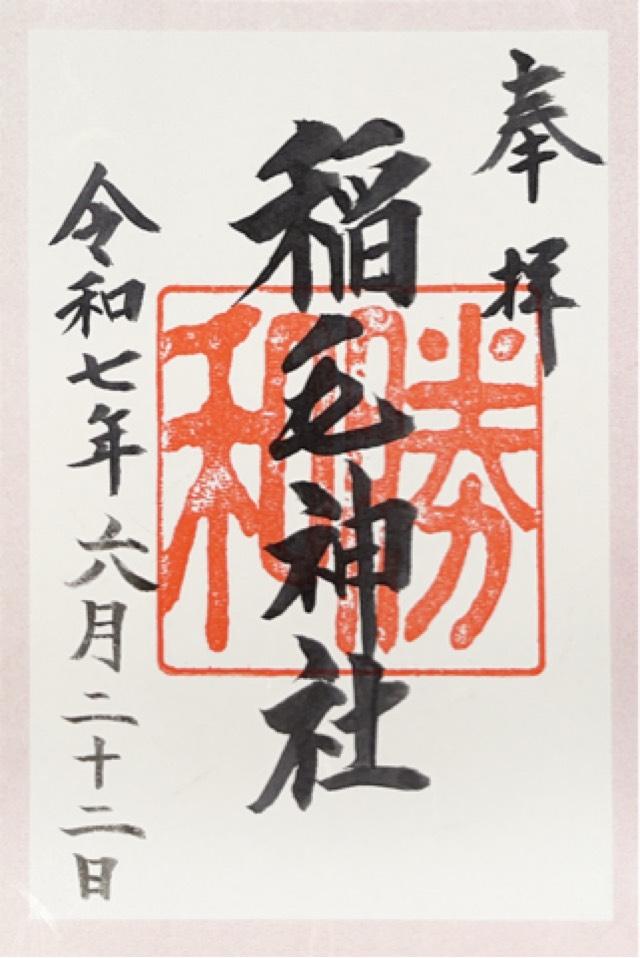 奉拝
稲毛神社
勝和
令和七年六月二十二日